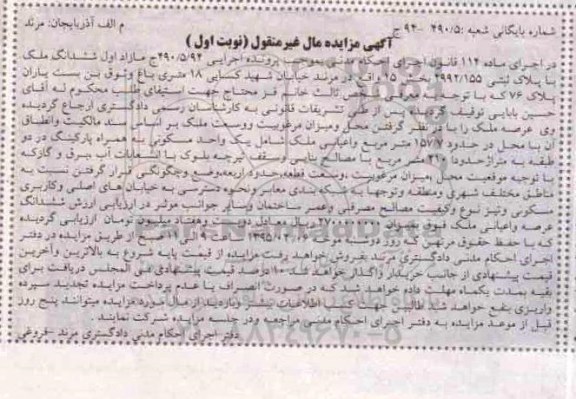 شماره بایگانی شعبه: ۴۹۰/۵ -۹۴ ج م الف آذربایجان: مرند
آگهی مزایده مال غیرمنقول (نوبت اول)
در اجرای ماده ۱۱۴ قانون اجرای احکام مدنی بموجب پرونده اجرایی ۴۹۰/۵/۹۴ج مازاد اول ششدانگ ملک
با پلاک ثبتی ۲۹۹۲/۱۵۵ بخش ۱۵ واقع در مرند خیابان شهید کسایی ۱۸ متری باغ وثوق بن بست یاران
پلاک ۷۶ که با توجه ثالث خانم فر محتاج جهت استیفای طلب محکوم له آقای
حسین بابایی توقیف گردیده پس از طی تشریفات قانونی به کارشناسان رسمی دادگستری ارجاع گردیده
وی عرصه ملک را با در نظر گرفتن محل ومیزان مرغوبیت ووسعت ملک بر اساس سند مالکیت وانطباق
آن با محل در حدود ۱۵۷/۷ متر مربع واعیانی ملک شامل یک واحد مسکونی با همراه پارکینگ در دو
طبقه به متراژ حدودا ۲۱۰ متر مربع با مصالح بنایی وسقف تیرچه بلوک با انشعابات آب ،برق و گاز که
با توجه موقعیت محل ،میزان مرغوبیت ،وسعت قطعه،حدود اربعه،وضع وچگونگی قرار گرفتن نسبت به
مناطق مختلف شهری ومنطقه وتوجها به شبکه بندی معابر ونحوه دسترسی به خیابان های اصلی وکاربری
مسکونی ونیز نوع وکیفیت مصالح مصرفی وعمر ساختمان وسایر جوانب موثر در ارزیابی ارزش ششدانگ
عرصه واعیانی ملک ریال معادل دویست وهفتاد میلیون تومان ارزیابی گردیده
که با حفظ حقوق مرتهن که روز دوشنبه مورخه ساعت ۹ الی صبح از طریق مزایده در دفتر
اجرای احکام مدنی دادگستری مرند بفروش خواهد رفت مزایده از قیمت پایه شروع به بالاترین وآخرین
قیمت پیشنهادی از جانب خریدار واگذار خواهد شد ۱۰درصد قیمت پیشنهادی فی المجلس دریافت برای
بقیه بمدت یکماه مهلت داده خواهد شد که در صورت انصراف یا عدم پرداخت مزایده تجدید سپرده
واریزی بنفع خواهد شد طالبین مهلت کسب اطلاعات بیشتر وبازدید از مال مورد مزایده میتوانند پنج روز
قبل از موعد مزایده به دفتر اجرای احکام مدنی مراجعه ودر جلسه مزایده شرکت نمایند
دفتر اجرای احکام مدنی دادگستری مرند -فروغی